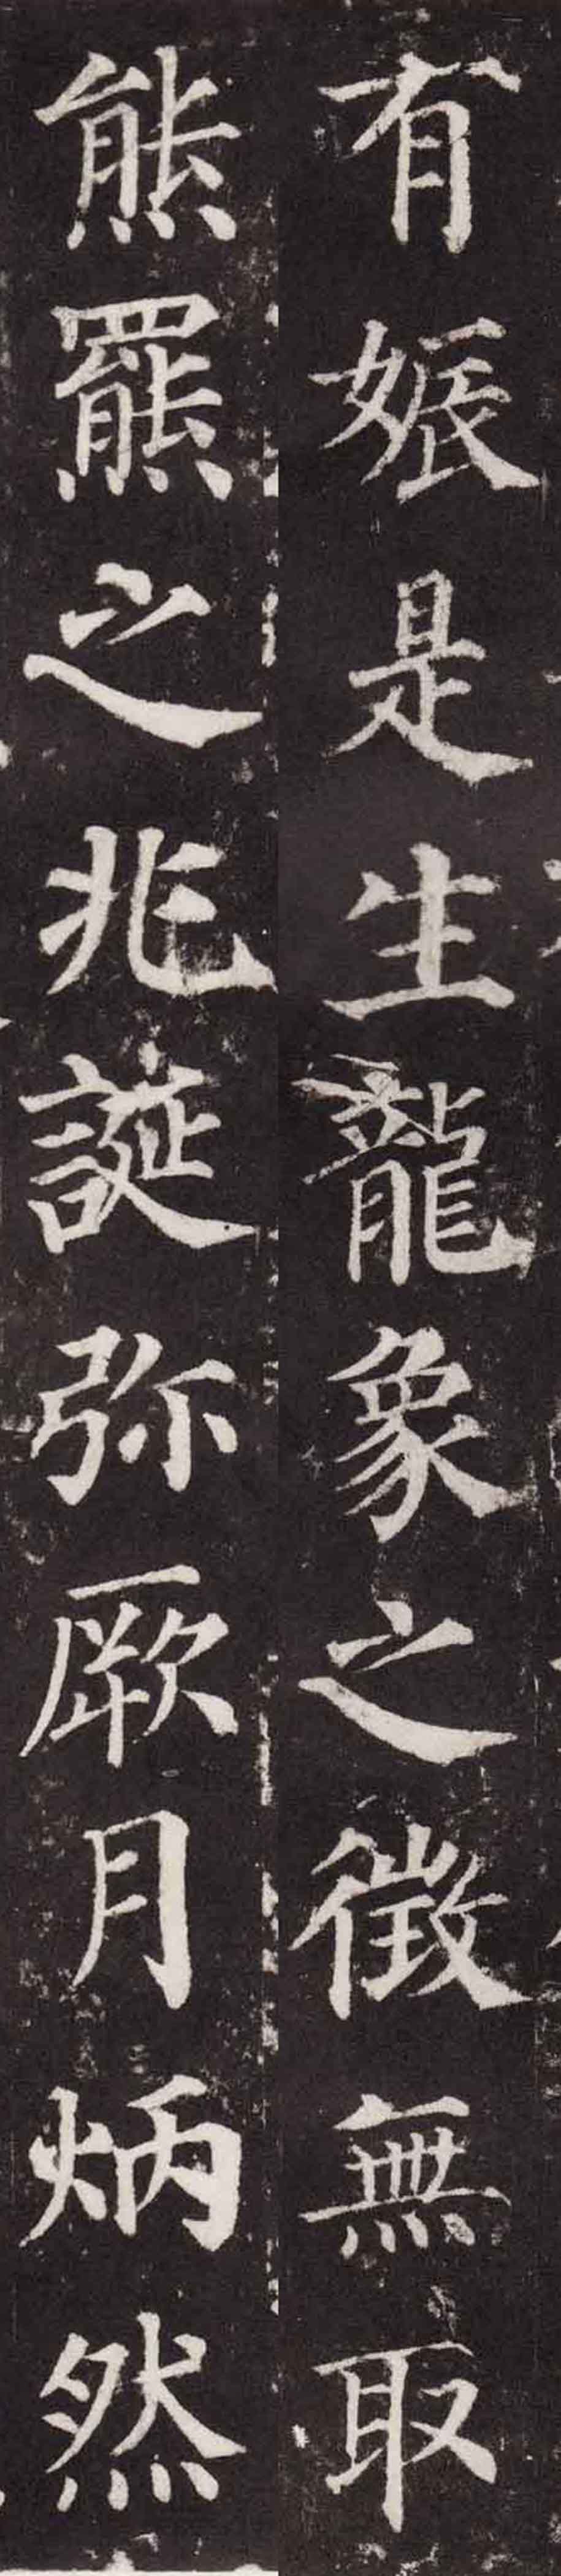 有娠是生龍象之徵無取
熊羆之兆誕弥厥月炳然